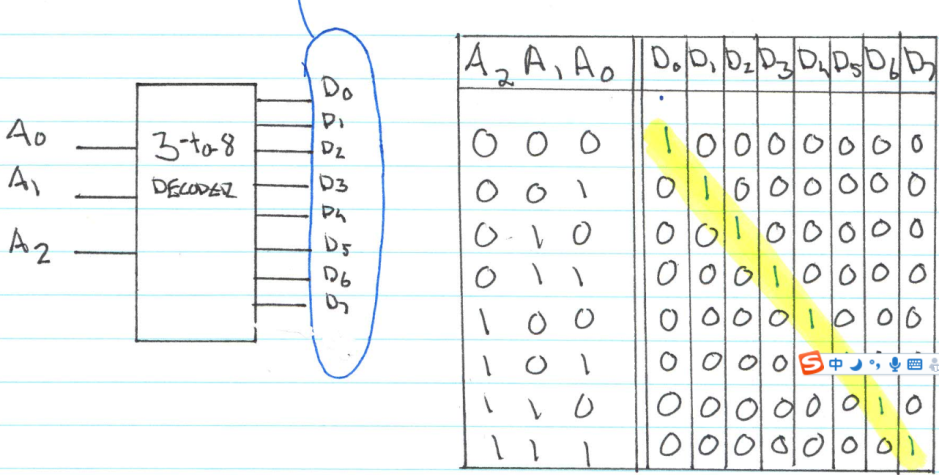 A0
A1
A2
3-to-8
DECODER
D0
D1
D2
D3
D4
D5
D6
D7
A2 A1 A0 D0 D1 D2 D3 D4 D5 D6 D7
0 0 0 1 0 0 0 0 0 0 0
0 0 1 0 1 0 0 0 0 0 0
0 1 0 0 0 1 0 0 0 0 0
0 1 1 0 0 0 1 0 0 0 0
1 0 0 0 0 0 0 1 0 0 0
1 0 1 0 0 0 0
S 中
1 1 0 0 0 0 0 0 0 1 0
1 1 1 0 0 0 0 0 0 0 1